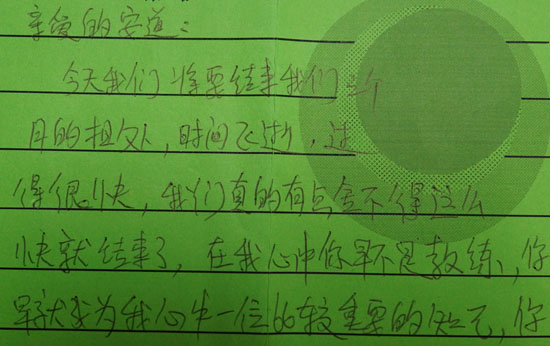 亲爱的安道：
今天我们将要结束我们三个
月的相处，时间飞逝，过
得很快，我们真的有点舍不得这么
快就结束了，在我心中你早不是教练，你
早就成为我心中一位比较重要的知己，你